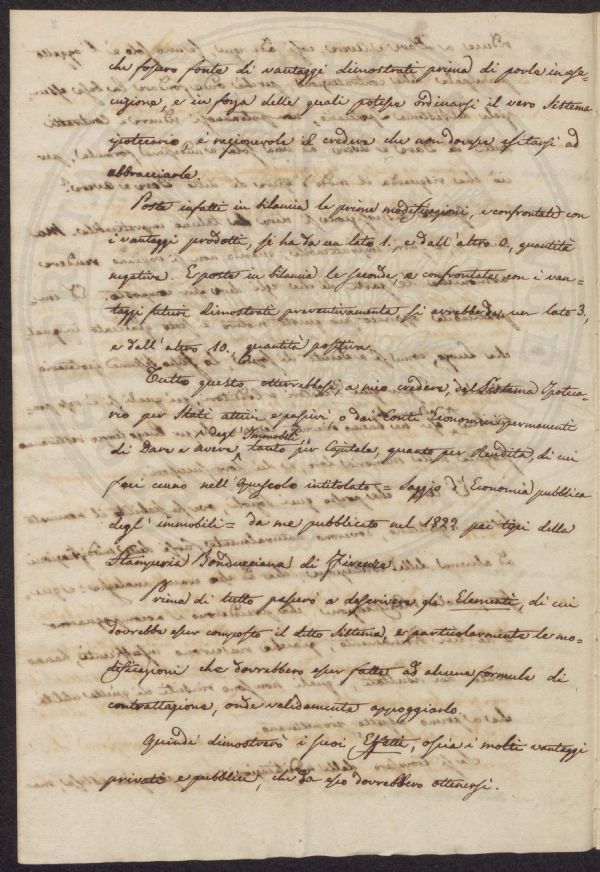 che fossero fonte di vantaggi dimostrati prima di porle in ese-
cuzione, e in forza delle quali potesse ordinarsi il vero Sistema
ipotecario, è ragionevole il credere che non dovesse esitarsi ad
abbracciarle.
Poste infatti in bilancia le prime modificazioni, e confrontate con
i vantaggi prodotti, si ha da un lato 1., e dall'altro 0., quantità
negativa. E poste in bilancia le seconde, e confrontate con i van-
taggi futuri dimostrati preventivamente, si avrebbe da un lato 3.,
e dall'altro 10., quantità positiva.
Tutto questo otterrebbesi, a mio credere, dal Sistema Ipoteca-
rio per Stati attivi e passivi o dai Conti Economici permanenti
degl' Immobili
di Dare e avere, tanto per Capitale, quanto per Rendita, di cui
feci cenno nell'Opuscolo intitolato = Saggio d'Economia pubblica
degl' immobili = da me pubblicato nel 1822 pei tipi della
Stamperia Bonducciana di Firenze.
Prima di tutto passerò a descrivere gli Elementi, di cui
dovrebbe esser composto il detto Sistema, e particolarmente le mo-
dificazioni che dovrebbero esser fatte ad alcune formule di
contrattazione, onde validamente appoggiarlo.
Quindi dimostrerò i suoi Effetti, ossia i molti vantaggi
privati e pubblici, che da esso dovrebbero ottenersi.